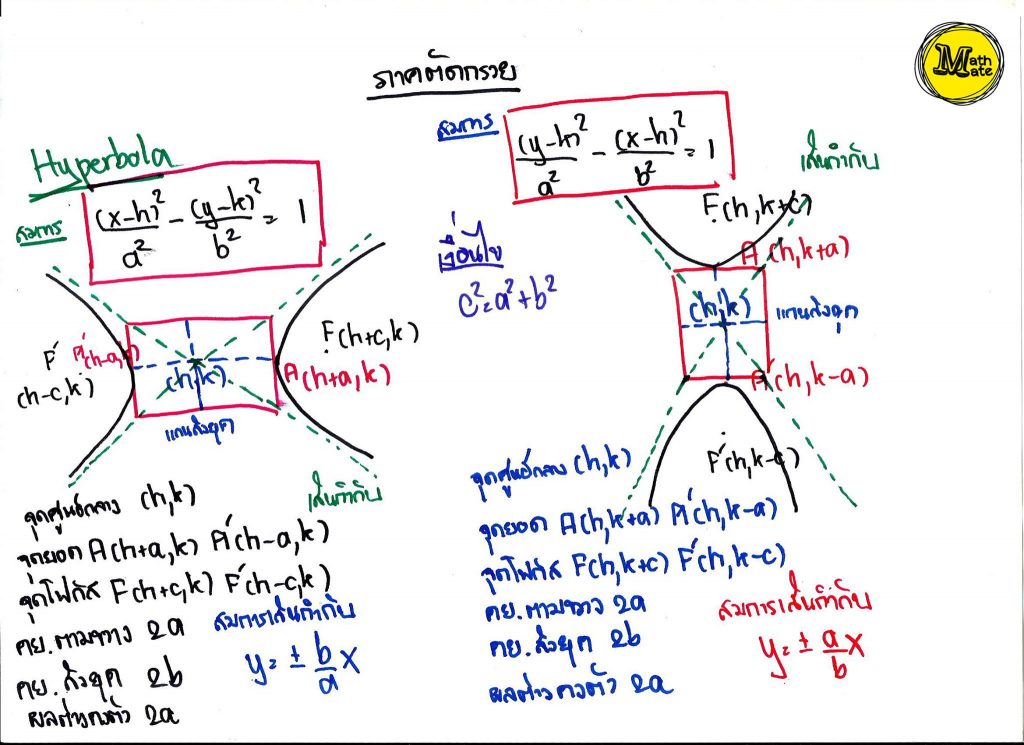 Math Mate
ภาคตัดกรวย
Hyperbola
สมการ
(x-h)²/a² - (y-k)²/b² = 1
F'
(h-c,k)
A'(h-a,k)
(h,k)
F(h+c,k)
A(h+a,k)
แกนสังยุค
เส้นกำกับ
จุดศูนย์กลาง (h,k)
จุดยอด A(h+a,k) A'(h-a,k)
จุดโฟกัส F(h+c,k) F'(h-c,k)
คย.ตามขวาง 2a
คย.สังยุค 2b
ผลต่างคงตัว 2a
สมการเส้นกำกับ
y = ± b/a x
เงื่อนไข
c² = a² + b²
สมการ
(y-k)²/a² - (x-h)²/b² = 1
เส้นกำกับ
F(h,k+c)
A(h,k+a)
(h,k)
แกนสังยุค
A'(h,k-a)
F'(h,k-c)
จุดศูนย์กลาง (h,k)
จุดยอด A(h,k+a) A'(h,k-a)
จุดโฟกัส F(h,k+c) F'(h,k-c)
คย.ตามขวาง 2a
คย.สังยุค 2b
ผลต่างคงตัว 2a
สมการเส้นกำกับ
y = ± a/b x